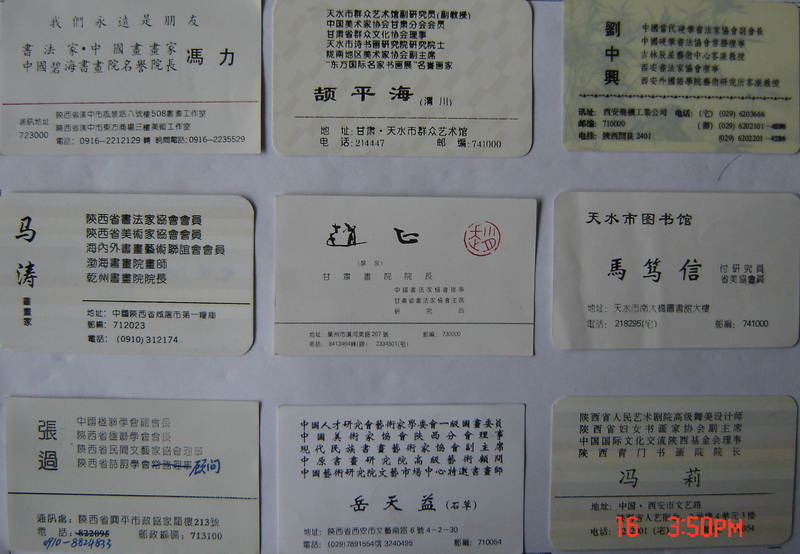 我們永遠是朋友
書法家·中國畫畫家
中國碧海書畫院名譽院長
馮力
通訊地址
陝西省漢中市風景路八號樓508畫畫工作室
陝西省漢中市東方商場三樓美術工作室
723000
電話：0916-2212129 轉 晚間電話：0916-2235529
天水市群众艺术馆副研究员(副教授)
中国美术家协会甘肃分会会员
甘肃省群众文化协会理事
天水市诗书画研究院研究院士
陇南地区美术家协会副主席
"东方国际名家书画展"名誉画家
颉平海 (渭川)
地 址：甘肃·天水市群众艺术馆
电 话：214447 邮 编：741000
劉中興
中國當代硬筆書法家協會副會長
中國硬筆書法家協會常務理事
吉林辰星藝術中心客座教授
西安書法家協會理事
西安外國語學院藝術研究所客座教授
地址：西安飛機工業公司 電話：(宅) (029) 6203666
郵編：710000 (辦) (029) 6202101
电挂：陝西閻良 2401 (029) 6202201
马涛
畫畫家
陝西省書法家協會會員
陝西省美術家協會會員
海內外書畫藝術聯誼會會員
渤海書畫院畫師
乾州書畫院院長
地址：中國陝西省咸陽市第一糧庫
郵編：712023
電話：(0910) 312174
趙正
甘肅畫院院長
中國書法家協會理事
甘肅省書法家協會主席
研究員
地址：蘭州市濱河東路 267 號 郵編：730000
電話：8413464(辦) 2334501(宅)
天水市图书馆
馬篤信
付研究員
省美協會員
地址：天水市南大橋圖書館大樓
電話：218295(宅) 郵編：741000
張過
中國楹聯學會副會長
陝西省楹聯學會會長
陝西省民間文藝家協會理事
陝西省詩詞學會常務理事 顧问
通訊處：陝西省興平市政協家屬樓213號
電話：832095 郵政編碼：713100
0910-8824833
中国人才研究會藝術家學委會一級國畫委員
中国美術家協會陝西分會理事
現代民族書畫藝術家協會副主席
中原書畫研究院高級藝術顧問
中國藝術研究院文藝市場中心特邀書畫師
岳天益 (石草)
地址：陝西省西安市文藝南路 6 號 4-2-30
電話：(029)7891554 3240495 郵編：710054
陕西省人民艺术剧院高级舞美设计师
陕西省妇女书画家协会副主席
中国国际文化交流陕西基金会理事
陕西青门书画院院长
冯莉
地址：中国·西安市文艺路
4单元3楼
(宅) 邮编：710054
16 3:50PM